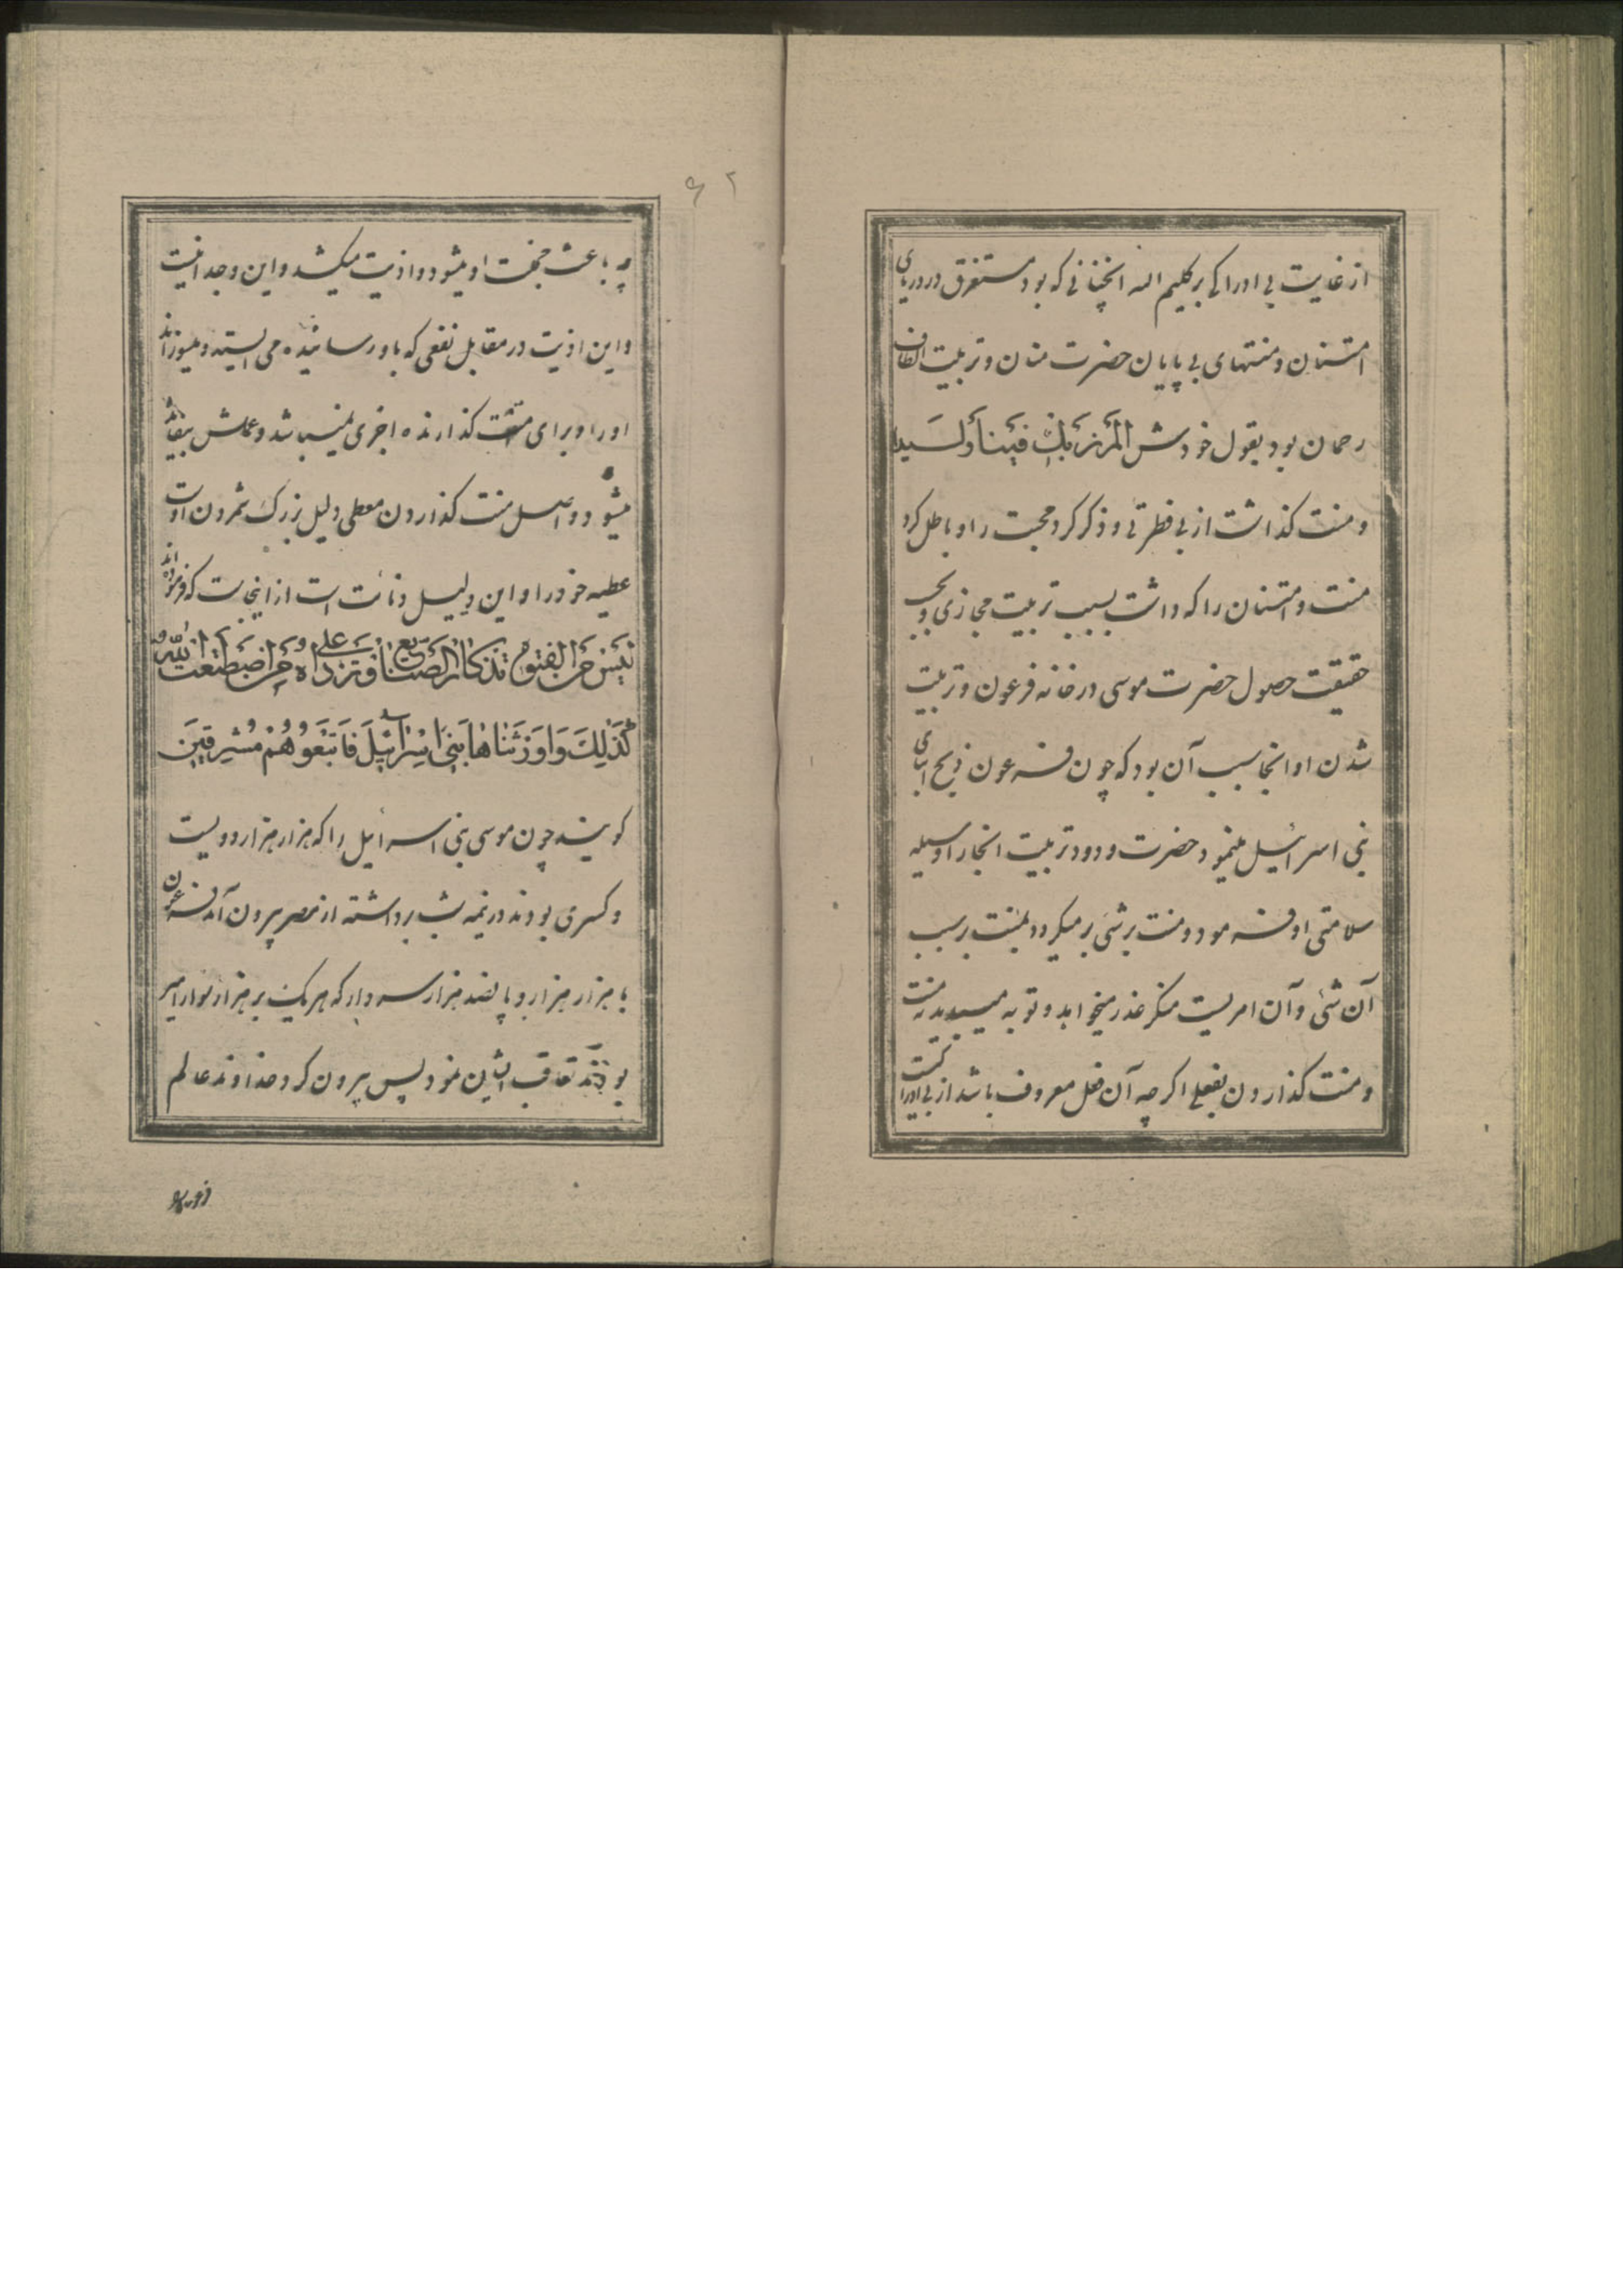 از غایت بی ادراکی بر کلیم الله انچنانی که بود مستغرق در دریای
امتنان و منتهای بی پایان حضرت منان و تربیت الطاف
رحمان بود بقول خودش المنربك فینا ولیدا
و منت گذاشت از بی فطرتی و ذکر کرد محبت را و باطل کرد
منت و امتنان را که داشت بسبب تربیت مجازی و بحسب
حقیقت حصول حضرت موسی در خانه فرعون و تربیت
شدن او انجا سبب آن بود که چون فرعون ذبح ابنای
بنی اسرائیل مینمود حضرت ودود تربیت انجا را وسیله
سلامتی او فرمود و منت بر شی بر میکردد بمنت بر سبب
آن شئ و آن امریست منکر عذر میخواهد و توبه میباید نه منت
و منت گذاردن بفعلی اگر چه آن فعل معروف باشد از بی ادراکیست
۶۲
چه باعث خجلت او میشود و اذیت میکشد و این وجدانیست
و این اذیت در مقابل نفعی که باو رسانیده می ایستد و میسوزاند
او را و برای منت گذارنده اجری نمیباشد و عملش بیفایده
میشود و اصل منت گذاردن معطی دلیل بزرگ شمردن اوست
عطیه خود را و این دلیل دنائت است از اینجاست که فرموده اند
لیس من الفتوة تذکار الصنایع و تردادها علی من اصطنعت الیه
كَذَلِكَ وَاَوْرَثْنَاهَا بَنِي اِسْرَائِيلَ فَاَتْبَعُوهُمْ مُشْرِقِينَ
گویند چون موسی بنی اسرائیل را که هزار هزار و دویست
و کسری بودند در نیمه شب برداشته از مصر بیرون آمد فرعون
با هزار هزار و پانصد هزار سردار که هر یک بر هزار سوار امیر
بودند تعاقب ایشان نمود پس بیرون کرد خداوند عالم